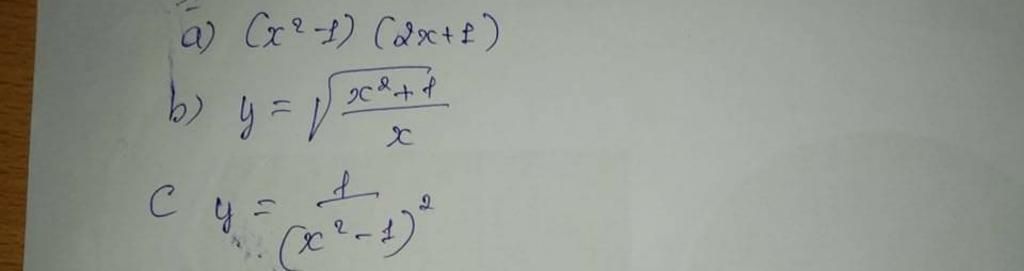 a) (x²-1) (2x+1)
b) y = √((x²+1)/x)
C y = 1/(x²-1)²